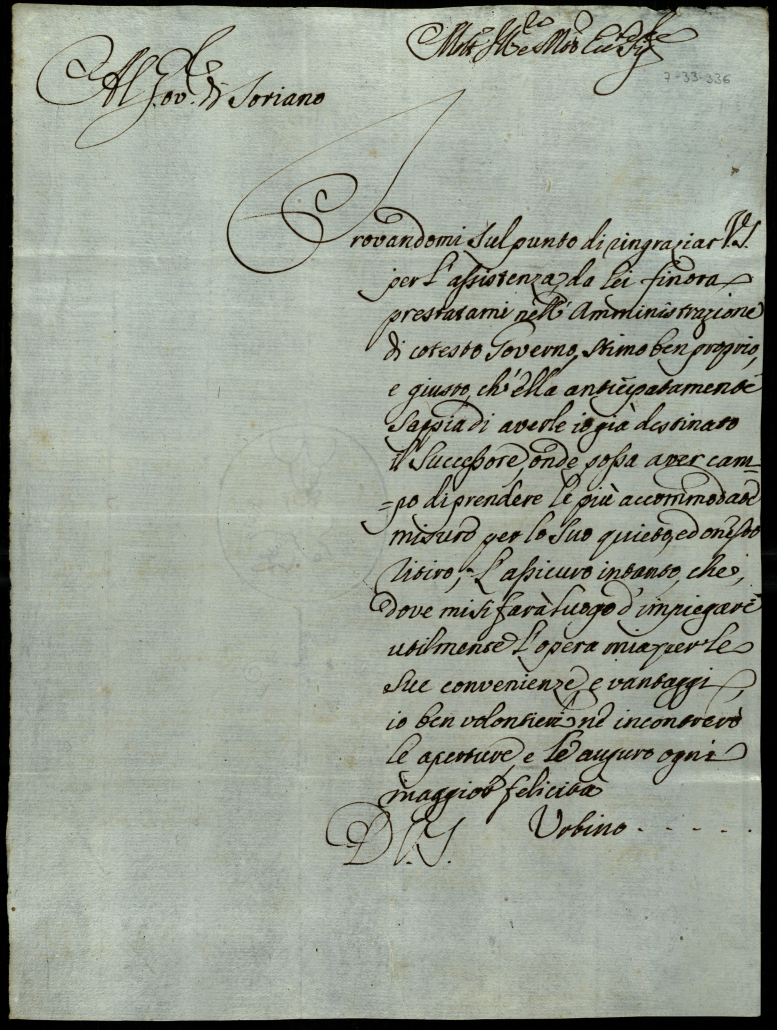 Molt' Ill.re Mio Sig.r
7-33-336
Al Gov.re di Soriano
Trovandomi sul punto di ringraziar V.S.
per l'assistenza da lei finora
prestatami nell'Amministrazione
di cotesto Governo, stimo ben proprio,
e giusto, ch'ella anticipatamente
sappia di averle io già destinato
il Successore, onde possa aver cam-
=po di prendere le più accommodate
misure per lo suo quieto, ed onesto
ritiro; L'assicuro intanto, che,
dove mi si farà luogo d'impiegare
utilmente l'opera mia per le
sue convenienze, e vantaggi,
io ben volontieri ne incontrerò
le aperture, e le auguro ogni
maggior felicità
D V.S. Urbino - - - - -